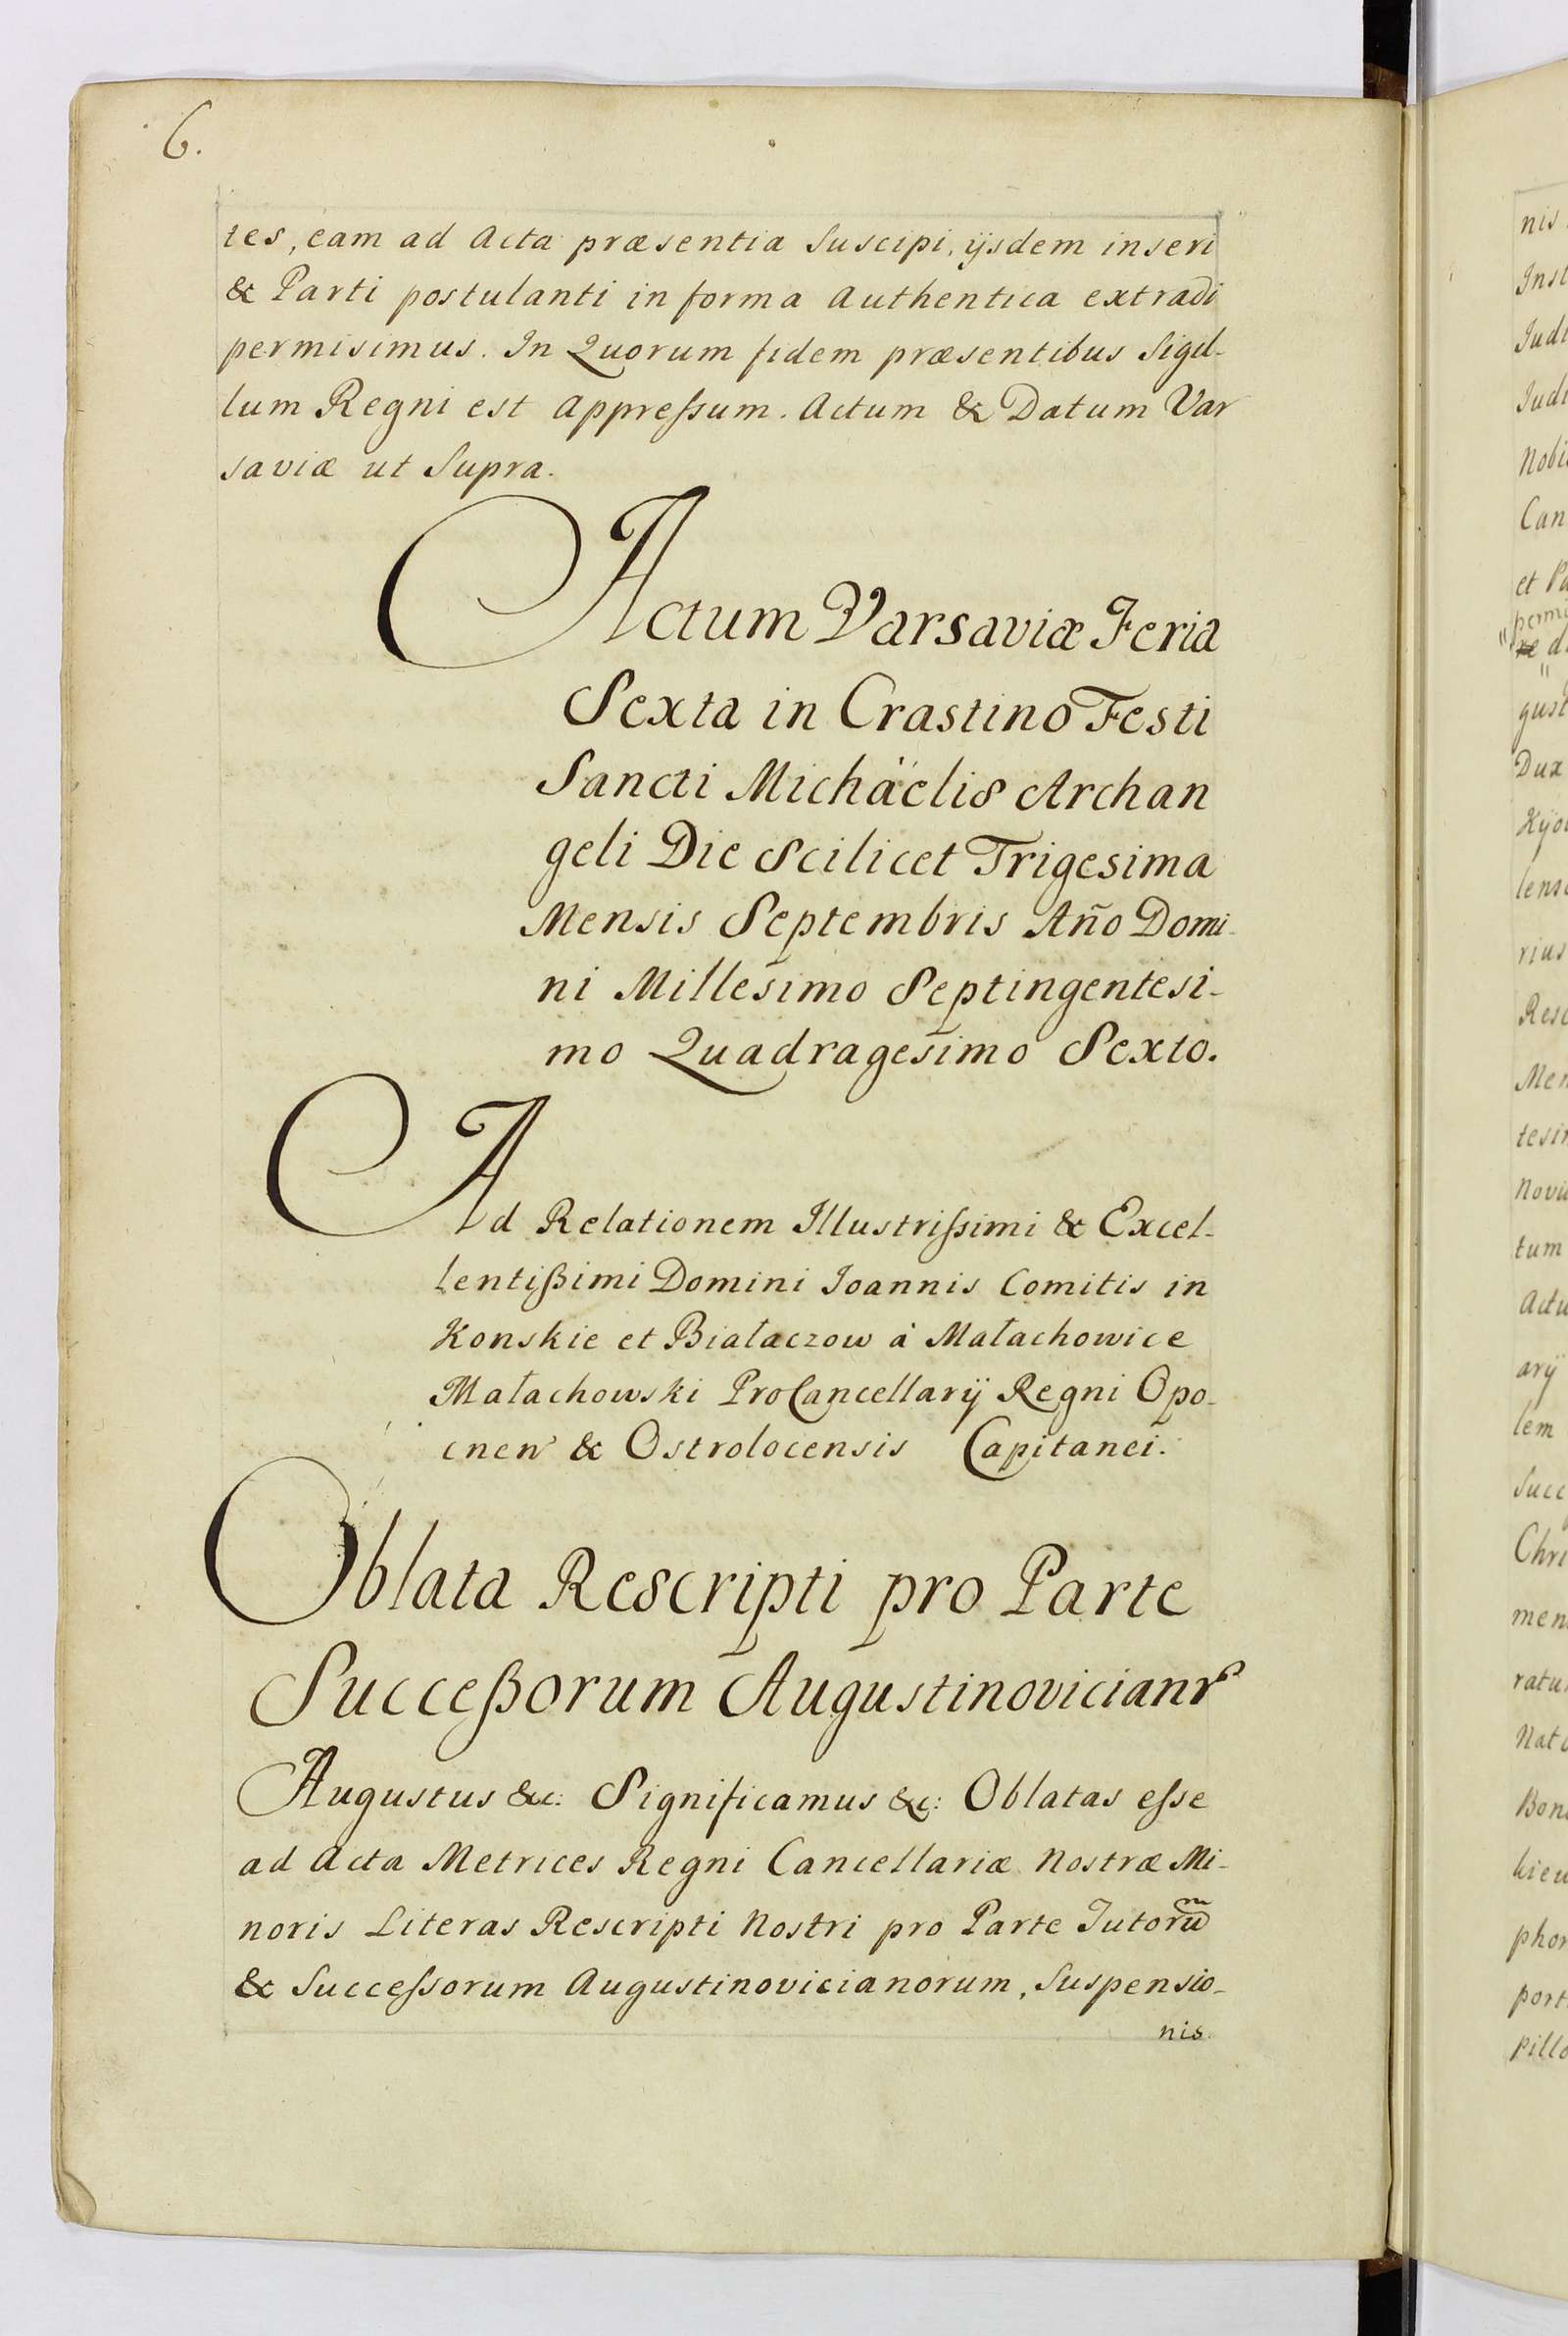 6.
tes, eam ad Acta præsentia suscipi, ijsdem inseri
& Parti postulanti in forma Authentica extradi
permisimus. In Quorum fidem præsentibus Sigil-
lum Regni est appressum. Actum & Datum Var
saviæ ut Supra.
Actum Varsaviæ Feria
Sexta in Crastino Festi
Sancti Michaëlis Archan
geli Die Scilicet Trigesima
Mensis Septembris Año Domi-
ni Millesimo Septingentesi-
mo Quadragesimo Sexto.
Ad Relationem Illustrissimi & Excel-
lentißimi Domini Joannis Comitis in
Konskie et Białaczow à Małachowice
Małachowski ProCancellarij Regni Opo-
cnen & Ostrolocensis Capitanei.
Oblata Rescripti pro Parte
Succeßorum Augustinovicianr
Augustus &c: Significamus &c: Oblatas esse
ad Acta Metrices Regni Cancellariæ Nostræ Mi-
noris Literas Rescripti Nostri pro Parte Tutorũ
& Successorum Augustinovicianorum, Suspensio-
nis
nis
Inst
Judi
Judi
Nobi
Can
et Pa
permi
re di
gust
Dux
Kijo
lens
rius
Resc
Men
tesi
Novi
tum
Actu
arij
lem
Succ
Chri
men
ratu
Nat
Bon
kiew
phor
port
pill